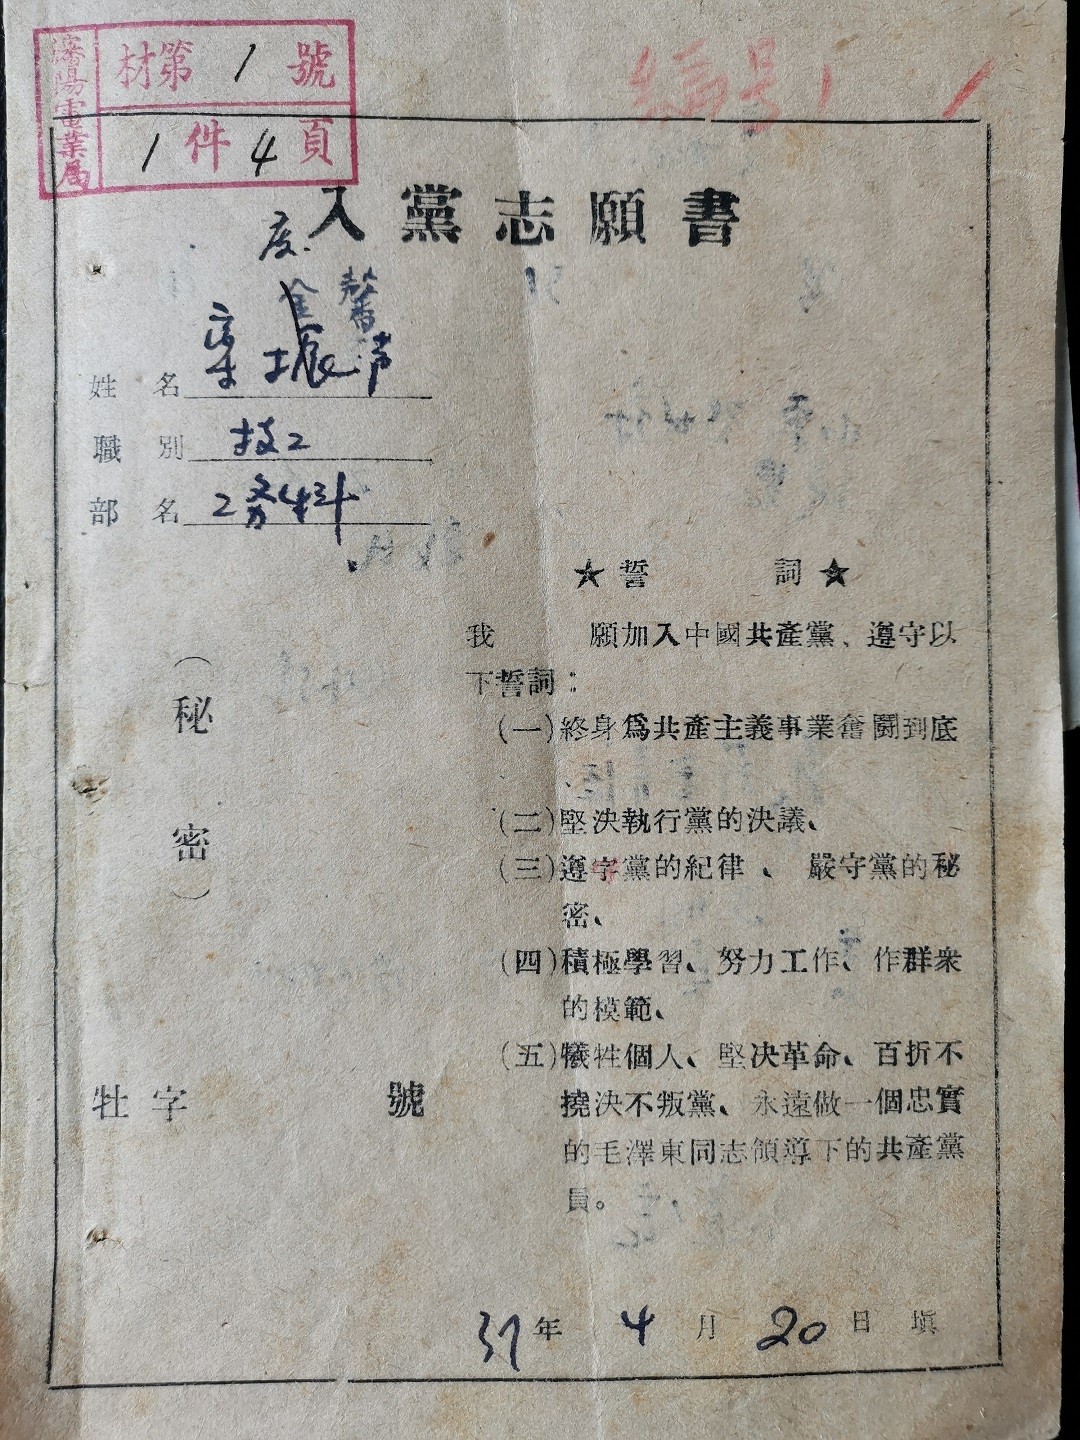 瀋陽電業局
材第1號
1件4頁
編号1
入黨志願書
姓名
職別 技工
部名 工务科
(秘密)
牡字 號
★誓 詞★
我 願加入中國共產黨、遵守以
下誓詞：
(一)終身爲共產主義事業奮鬪到底
、
(二)堅決執行黨的決議、
(三)遵字黨的紀律、嚴守黨的秘
密、
(四)積極學習、努力工作、作群衆
的模範、
(五)犧牲個人、堅決革命、百折不
撓決不叛黨、永遠做一個忠實
的毛澤東同志領導下的共產黨
員。
37年 4月 20日填